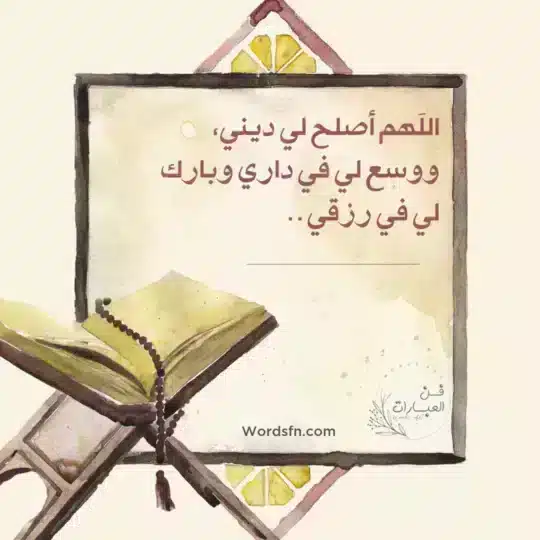 اللَهم أصلح لي ديني،
ووسع لي في داري وبارك
لي في رزقي..
فن
العبارات
Wordsfn.com